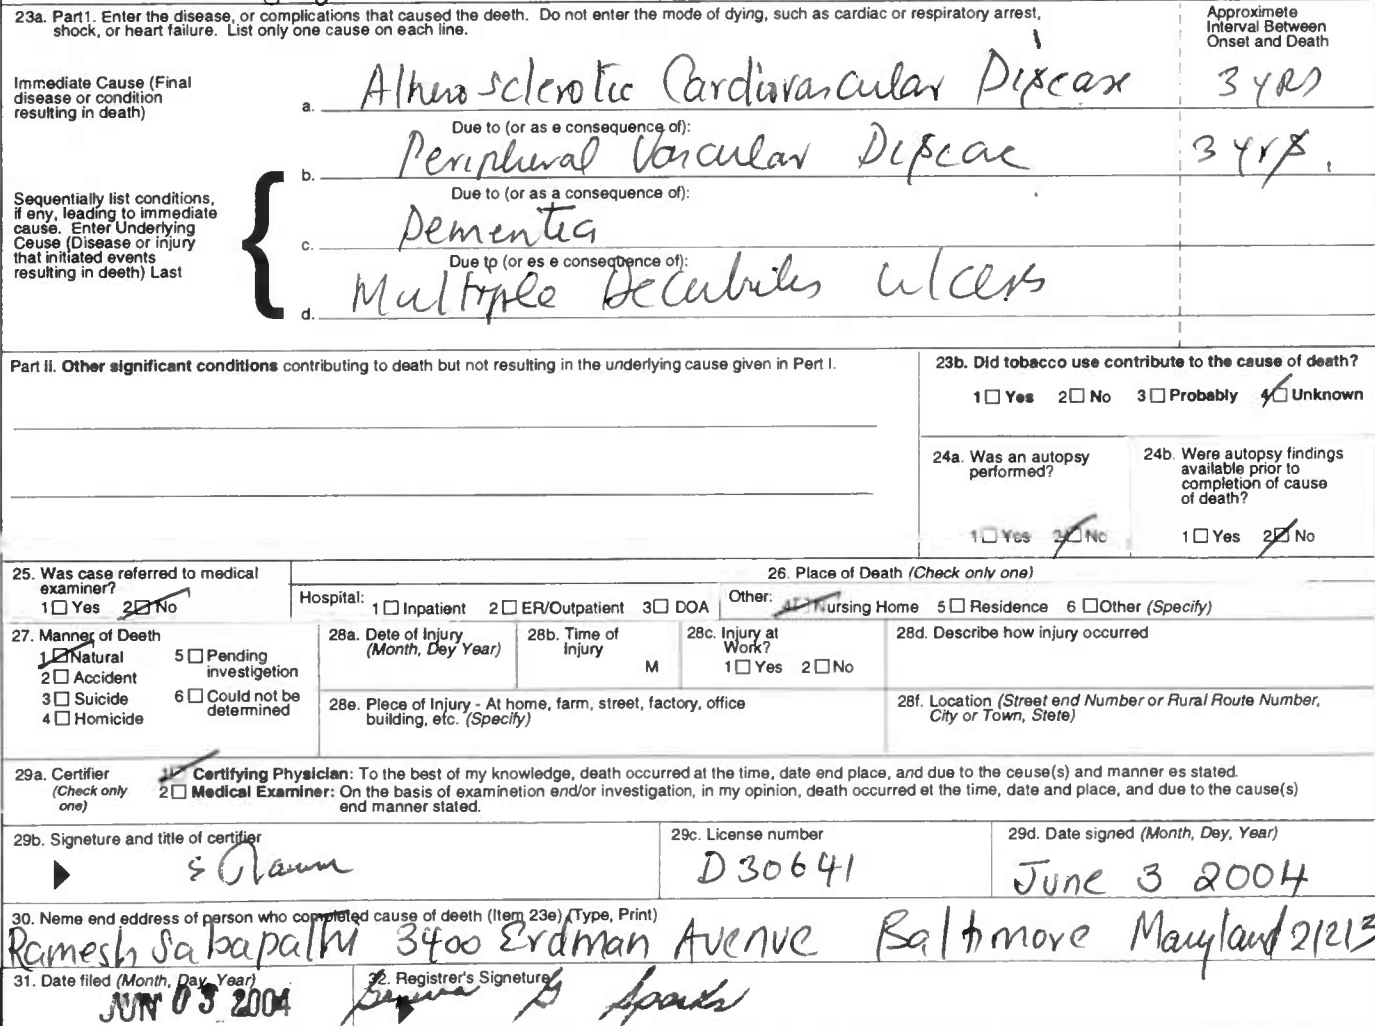 23a. Part1. Enter the disease, or complications that caused the deeth. Do not enter the mode of dying, such as cardiac or respiratory arrest,
shock, or heart failure. List only one cause on each line.
Approximete
Interval Between
Onset and Death
Immediate Cause (Final
disease or condition
resulting in death)
a. Atherosclerotic Cardiovascular Disease 3 YRS
Due to (or as e consequence of):
b. Peripheral Vascular Disease 3 yrs.
Sequentially list conditions,
if eny, leading to immediate
cause. Enter Underlying
Ceuse (Disease or injury
that initiated events
resulting in deeth) Last
Due to (or as a consequence of):
c. Dementia
Due tp (or es e consequence of):
d. Multiple Decubitus Ulcers
Part II. Other significant conditions contributing to death but not resulting in the underlying cause given in Pert I.
23b. Did tobacco use contribute to the cause of death?
1 □ Yes 2 □ No 3 □ Probably 4 □ Unknown
24a. Was an autopsy
performed?
1 □ Yes 2 □ No
24b. Were autopsy findings
available prior to
completion of cause
of death?
1 □ Yes 2 □ No
25. Was case referred to medical
examiner?
1 □ Yes 2 □ No
26. Place of Death (Check only one)
Hospital: 1 □ Inpatient 2 □ ER/Outpatient 3 □ DOA Other: 4 □ Nursing Home 5 □ Residence 6 □ Other (Specify)
27. Manner of Death
1 □ Natural 5 □ Pending
investigetion
2 □ Accident
3 □ Suicide 6 □ Could not be
determined
4 □ Homicide
28a. Dete of Injury
(Month, Dey Year)
28b. Time of
Injury
M
28c. Injury at
Work?
1 □ Yes 2 □ No
28d. Describe how injury occurred
28e. Plece of Injury - At home, farm, street, factory, office
building, etc. (Specify)
28f. Location (Street end Number or Rural Route Number,
City or Town, Stete)
29a. Certifier
(Check only
one)
1 □ Certifying Physician: To the best of my knowledge, death occurred at the time, date end place, and due to the ceuse(s) and manner es stated.
2 □ Medical Examiner: On the basis of examinetion end/or investigation, in my opinion, death occurred et the time, date and place, and due to the cause(s)
end manner stated.
29b. Signature and title of certifier
29c. License number
D30641
29d. Date signed (Month, Dey, Year)
June 3 2004
30. Neme end eddress of person who completed cause of death (Item 23e) (Type, Print)
Ramesh Sabapathi 3400 Erdman Avenue Baltimore Maryland 21213
31. Date filed (Month, Day, Year)
JUN 03 2004
32. Registrer's Signature
Sparks